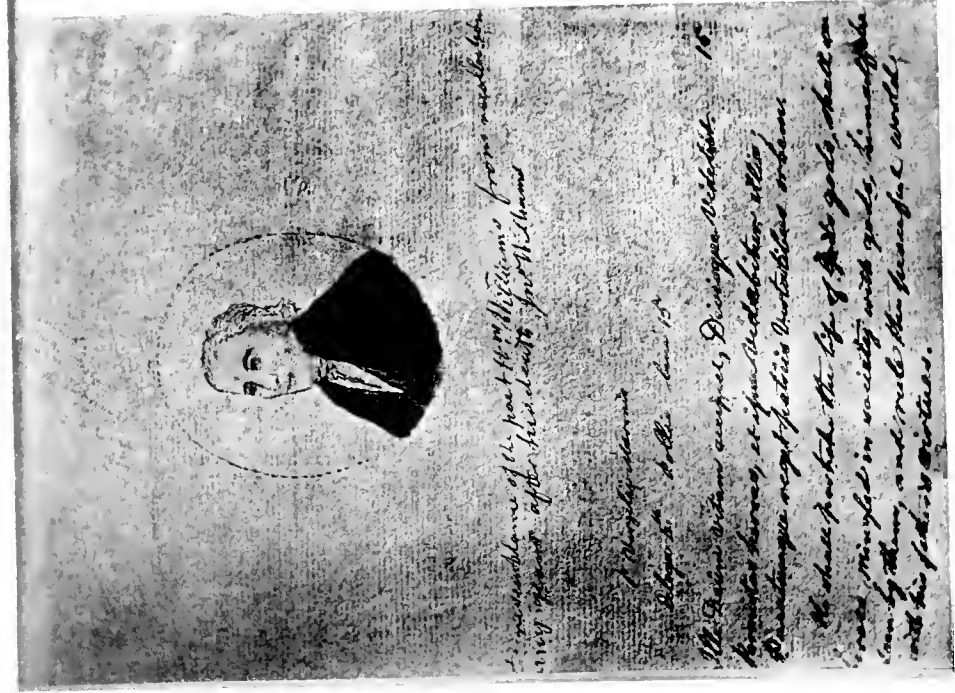 resemblance of the poet Wm Williams from recollection
many years after his Jno Williams
Eclog 4. Pollio line 15
Ille Deûm vitam accipiet, Divisque videbit 15
Permixtos heroas, et ipse videbitur illis,
Pacatumque reget patriis virtutibus orbem
He shall partake the life of gods shall see
heroes mingled in society with gods, himself be
seen by them, and rule the peaceful world,
with his father's virtues.